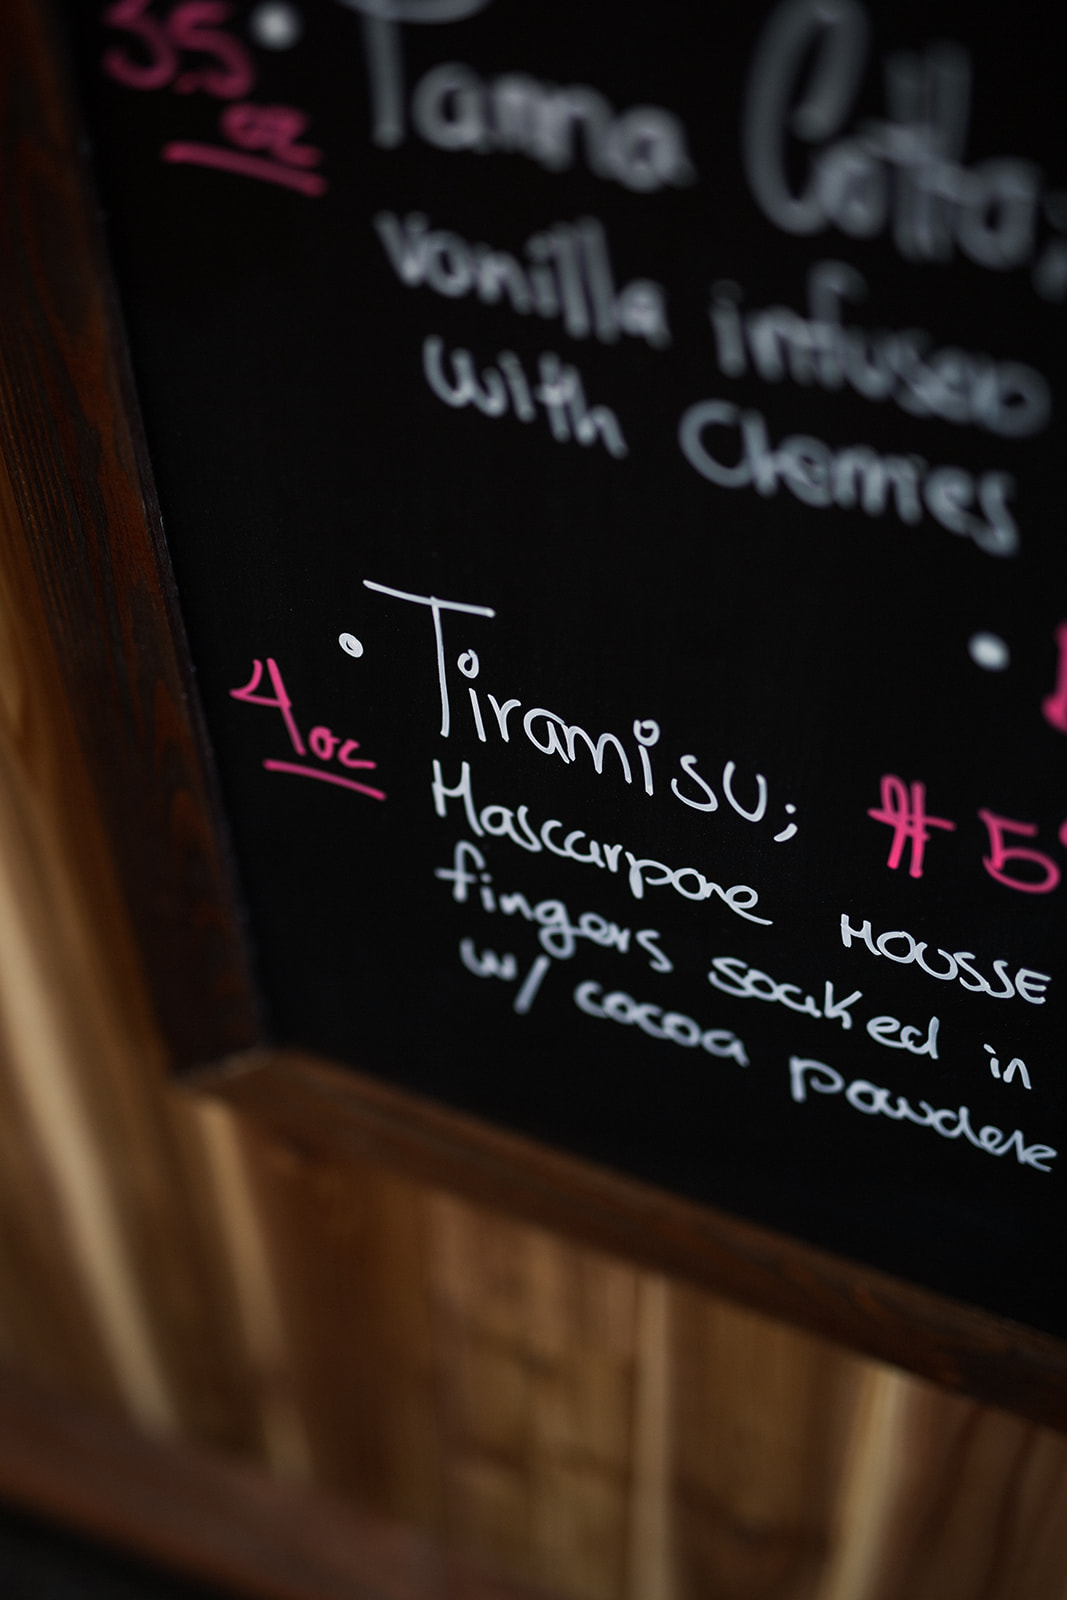 3.5 oz
Panna Cotta;
vanilla infused
with Cherries
Tiramisu;
4 oz
$ 5
Mascarpone MOUSSE
fingers soaked in
w/ cocoa powder